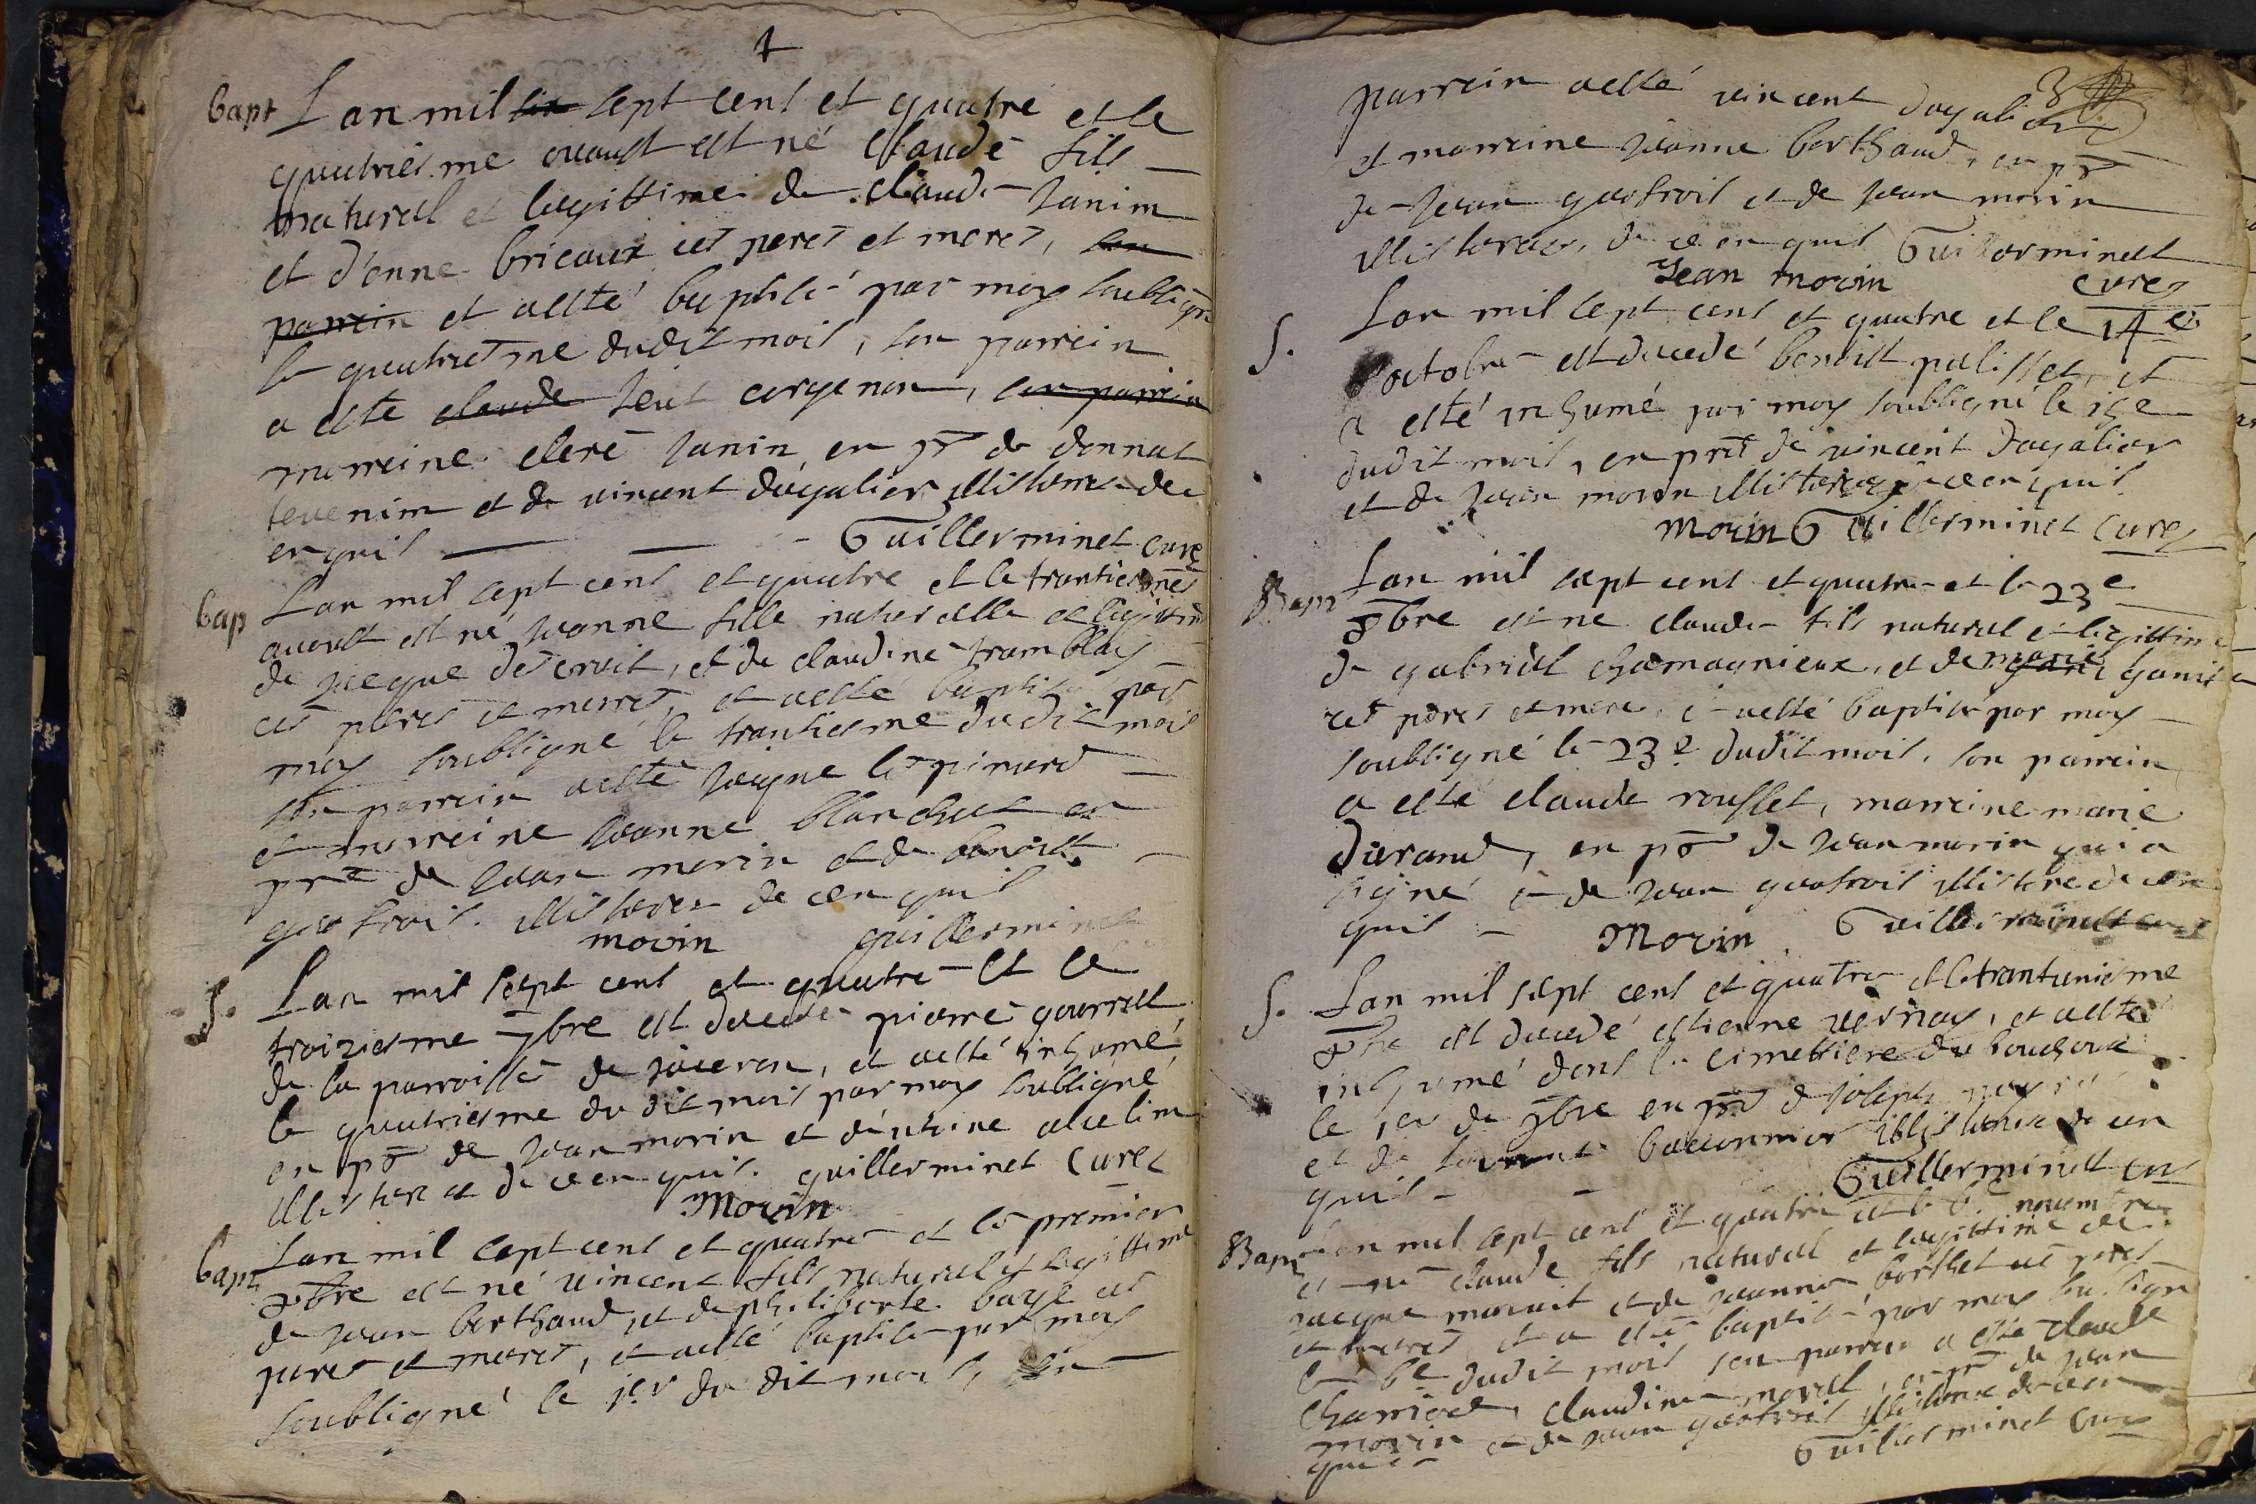 bapt Lan mil six sept cent et quatre et le
quatriesme aoust est né Claude fils
naturel et legittime de Claude Janim
et d'enne bricaux ses peres et meres, son
parrein et a esté baptisé par moy soubsigné
le quatriesme dudit mois, son parrein
a esté claude corgenon, son parrein
marreine clere Janin, en pr de donnat
tevenim et de vincent dagalier illisteres de ce
enquis Guillerminet curé
bap Lan mil sept cent et quatre et le trantiesmes
aoust est né Jeanne fille naturelle et legittime
de Jacque descroit, et de claudine tramblay
ces peres et meres, et a esté baptisé par
moy soubsigné le trantiesme dudit mois
son parrein a esté Jacque le pinard
et marreine Jeanne blanchet en
pre de Jean morin et de benoist
gootrois. illisteres de ce enquis
morin guillerminet
S. Lan mil sept cent et quatre et le
troiziesme 7bre est decedé pierre gourrell
de la parroisse de Jaceron, et a esté inhumé
le quatriesme du dit mois par moy soubsigné
en pr de Jean morin et d'entoine alielim
illistere de ce enquis. guillerminet Curé
Morin
bapt Lan mil sept cent et quatre et le premier
8bre est né vincent fils naturel et legittime
de Jean berthaud, et de philiberte baye ces
peres et meres, et a esté baptisé par moy
soubsigné le 1er du dit mois,
parrein a esté vincent dagalier
et marreine Jeanne berthaud, en pr
de Jean gootrois et de Jean morin
illisteres, de ce enquis Guillerminet
Jean morin curé
S. Lan mil sept cent et quatre et le 14e
octobre est decedé benoist palisset, et
a esté inhumé par moy soubsigné le
dudit mois, en prt de vincent dagalier
et de Jean morin illisteres de ce enquis
Morin Guillerminet Curé
Bapt Lan mil sept cent et quatre et le 23e
8bre est ne claude fils naturel et legittime
de gabriel chamaunieux, et de marie
ces peres et mere. et a esté baptisé par moy
soubsigné le 23e dudit mois. son parrein
a esté claude rousset, marreine marie
durand, en pr de Jean morin qui a
signé et de Jean gootrois illistere de ce en
quis Morin Guillerminet curé
S. Lan mil sept cent et quatre et le trantuniesme
8bre est decedé estienne vernay, et a esté
inhumé dans le cimettiere du bouchoux
le 1er de 9bre en pr de Joseph
et de baconnier illisteres de ce en
quis Guillerminet curé
Bapt Lan mil sept cent et quatre et le 6e novembre
est né claude fils naturel et legittime de
Jacque marait et de Jeanne berthet ces peres
et meres et a esté baptisé par moy soubsigné
le 6e dudit mois son parrein a esté claude
claudine morel, en pr de Jean
morin et de Jean gootrois illisteres de ce en
quis Guillerminet Curé